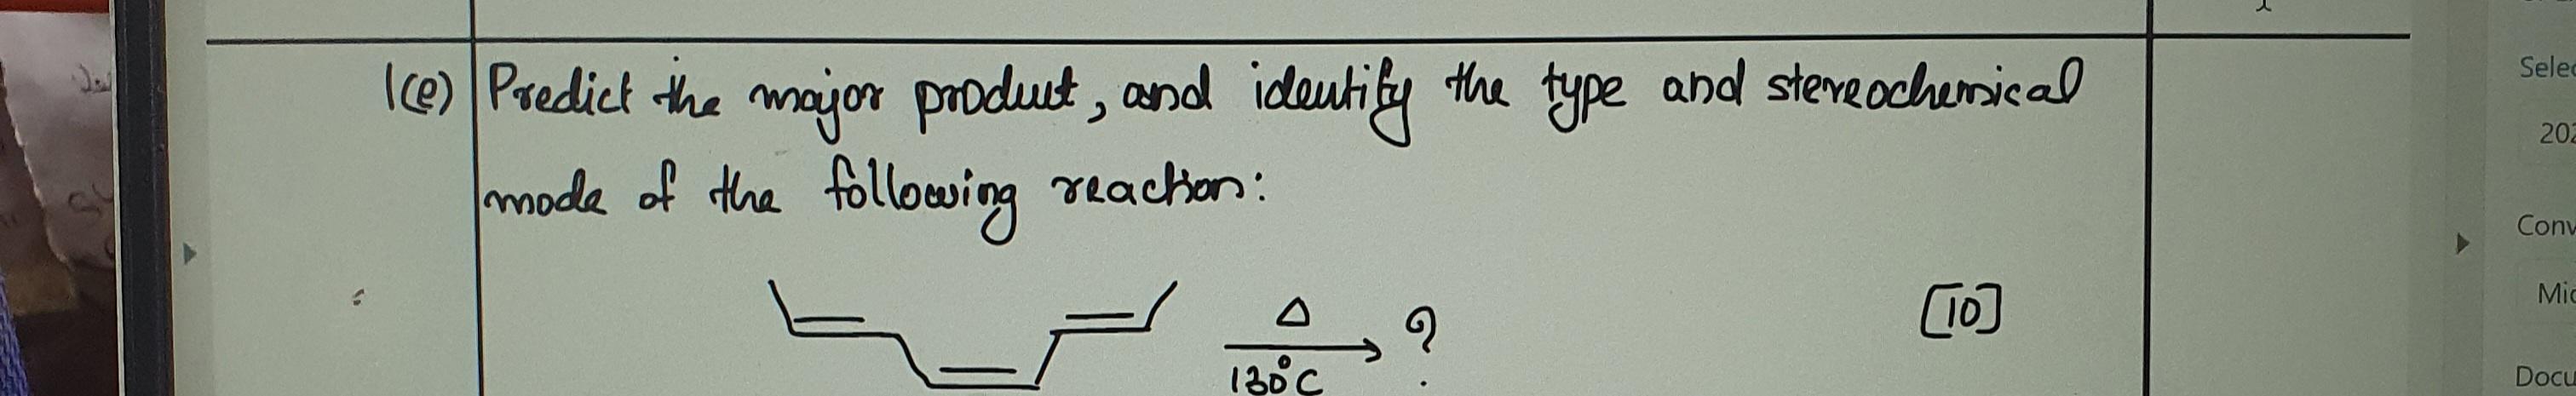 1(e) Predict the major product, and identify the type and stereochemical
mode of the following reaction:
Δ
130°C
?
[10]
Selec
202
Conv
Mic
Docu